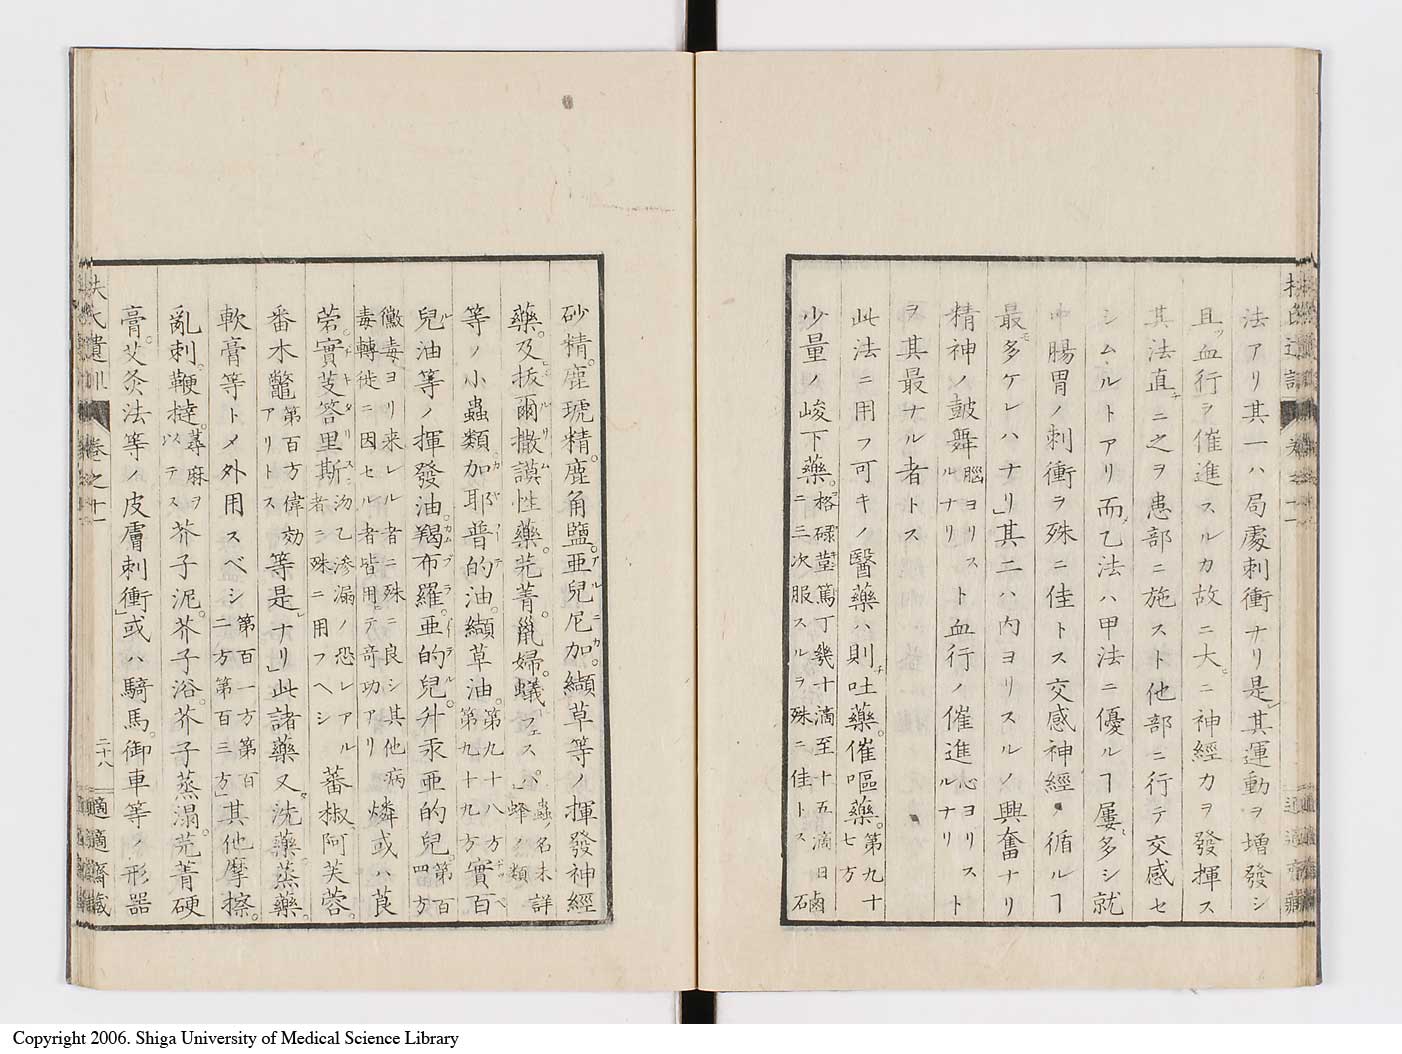 法アリ其一ハ局處刺衝ナリ是レ其運動ヲ增發シ
且ツ血行ヲ催進スルカ故ニ大ニ神經力ヲ發揮ス
其法直チニ之ヲ患部ニ施スト他部ニ行テ交感セ
シムルトアリ而メ乙法ハ甲法ニ優ルヿ屢多シ就
中腸胃ノ刺衝ヲ殊ニ佳トス交感神經ノ循ルヿ
最モ多ケレハナリ」其二ハ內ヨリスルノ興奮ナリ
精神ノ鼓舞腦ヨリスルナリト血行ノ催進心ヨリスルナリト
ヲ其最ナル者トス
此法ニ用フ可キノ醫藥ハ則チ吐藥。催嘔藥。第九十七方
少量ノ峻下藥。格碌菫篤丁幾十滴至十五滴日ニ三次服スルヲ殊ニ佳トス鹵石
砂精。鹿琥精。鹿角鹽。亜兒尼加。纈草等ノ揮發神經
藥。及拔爾撒謨性藥。芫菁。鼠婦。蟻。フェスパ蟲ノ名未詳」蜂ノ類
等ノ小蟲類。加耶普的油。纈草油。第九十八方第九十九方實百
兒油等ノ揮發油。羯布羅。亜的兒。升汞亜的兒。第百四方
黴毒ヨリ来レル者ニ殊ニ良シ其他病毒轉徙ニ因セル者皆用テ奇功アリ燐或ハ莨
菪。實芰答里斯。沕乙滲漏ノ恐レアル者ニ殊ニ用フヘシ蕃椒。阿芙蓉。
番木鼈第百方偉効アリトス等是レナリ」此諸藥又洗藥。蒸藥。
軟膏等トメ外用スベシ第百一方第百二方第百三方」其他摩擦。
亂刺。鞭撻。蕁麻ヲ以テス芥子泥。芥子浴。芥子蒸溻。芫菁硬
膏。艾灸法等ノ皮膚刺衝」或ハ騎馬。御車等ノ形器
扶氏遺訓 卷之十一 二十八 適適齋藏
Copyright 2006. Shiga University of Medical Science Library